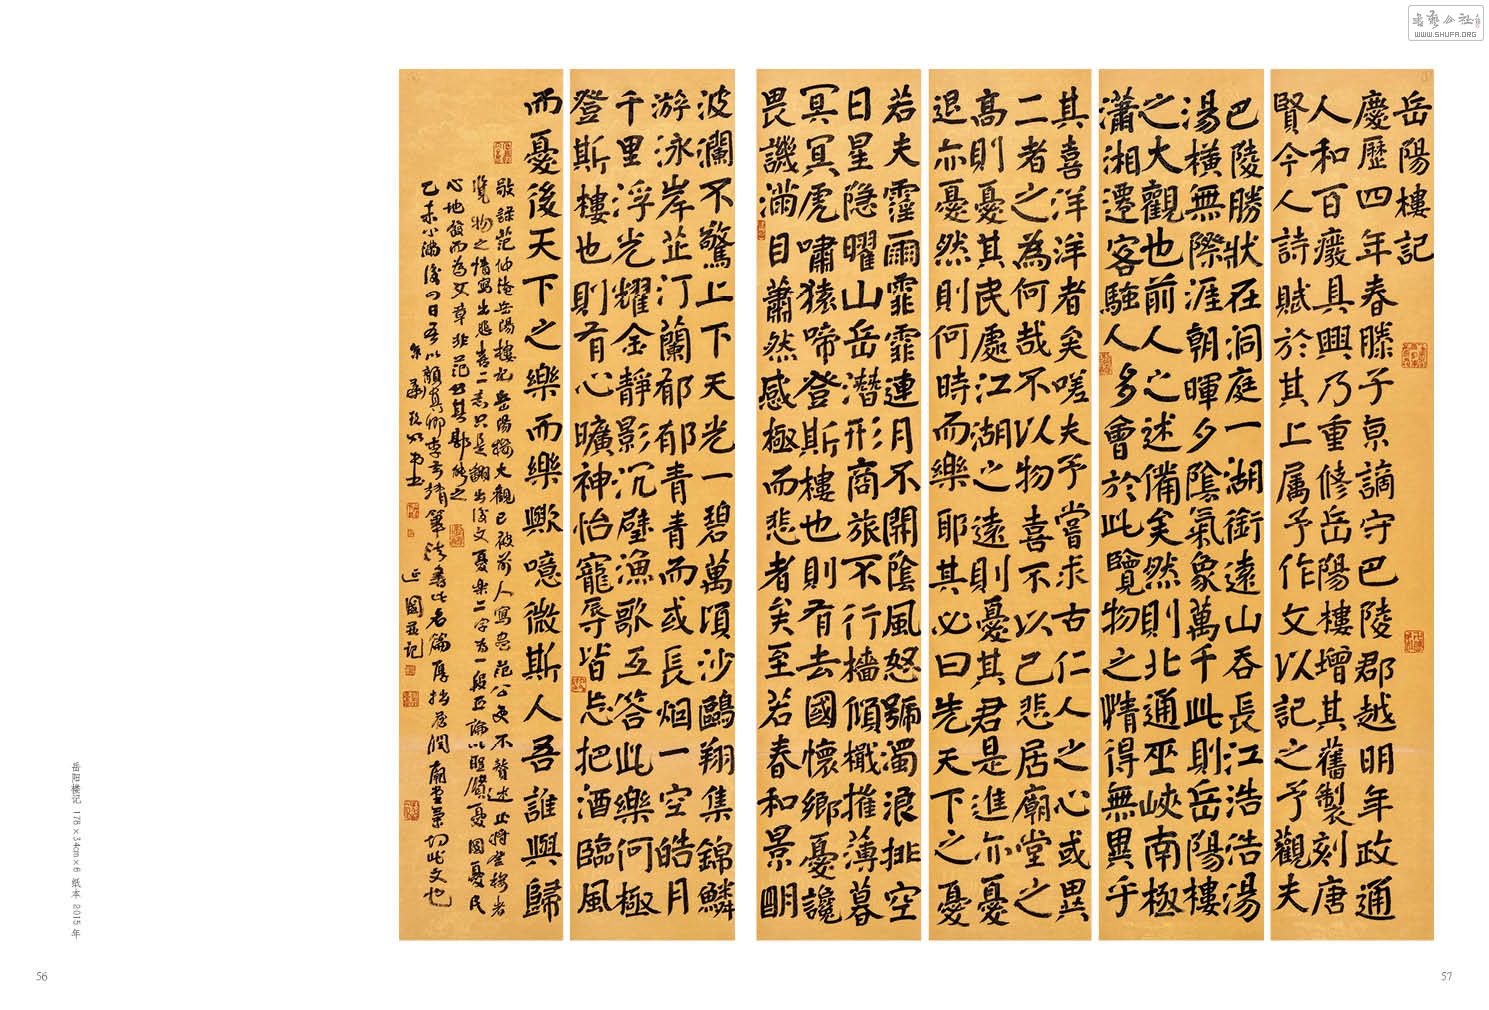 岳陽樓記
慶歷四年春滕子京謫守巴陵郡越明年政通
人和百癈具興乃重修岳陽樓增其舊製刻唐
賢今人詩賦於其上属予作文以記之予觀夫
巴陵勝狀在洞庭一湖銜遠山吞長江浩浩湯
湯橫無際涯朝暉夕陰氣象萬千此則岳陽樓
之大觀也前人之述備矣然則北通巫峽南極
瀟湘遷客騷人多會於此覽物之情得無異乎
其喜洋洋者矣嗟夫予嘗求古仁人之心或異
二者之為何哉不以物喜不以己悲居廟堂之
高則憂其民處江湖之遠則憂其君是進亦憂
退亦憂然則何時而樂耶其必曰先天下之憂
若夫霪雨霏霏連月不開陰風怒號濁浪排空
日星隐曜山岳潛形商旅不行檣傾檝摧薄暮
冥冥虎嘯猿啼登斯樓也則有去國懷鄉憂讒
畏譏滿目蕭然感極而悲者矣至若春和景明
波瀾不驚上下天光一碧萬頃沙鷗翔集錦鱗
游泳岸芷汀蘭郁郁青青而或長烟一空皓月
千里浮光耀金靜影沉璧漁歌互答此樂何極
登斯樓也則有心曠神怡寵辱皆忘把酒臨風
而憂後天下之樂而樂歟噫微斯人吾誰與歸
敬錄范仲淹岳陽樓記岳陽樓大觀已被前人寫尽范公更不贅述只將登樓者
覽物之情寫出悲喜二意只是翻出後文憂樂二字為一段正論以憂國憂民
心地發而為文章非范公其能之
乙未小滿後四日吾以顏真卿李玄靖筆法書此名篇廟堂切此文也
延國並記
岳阳楼记 178×34cm×6 纸本 2015年
56
57
WWW.SHUFA.ORG